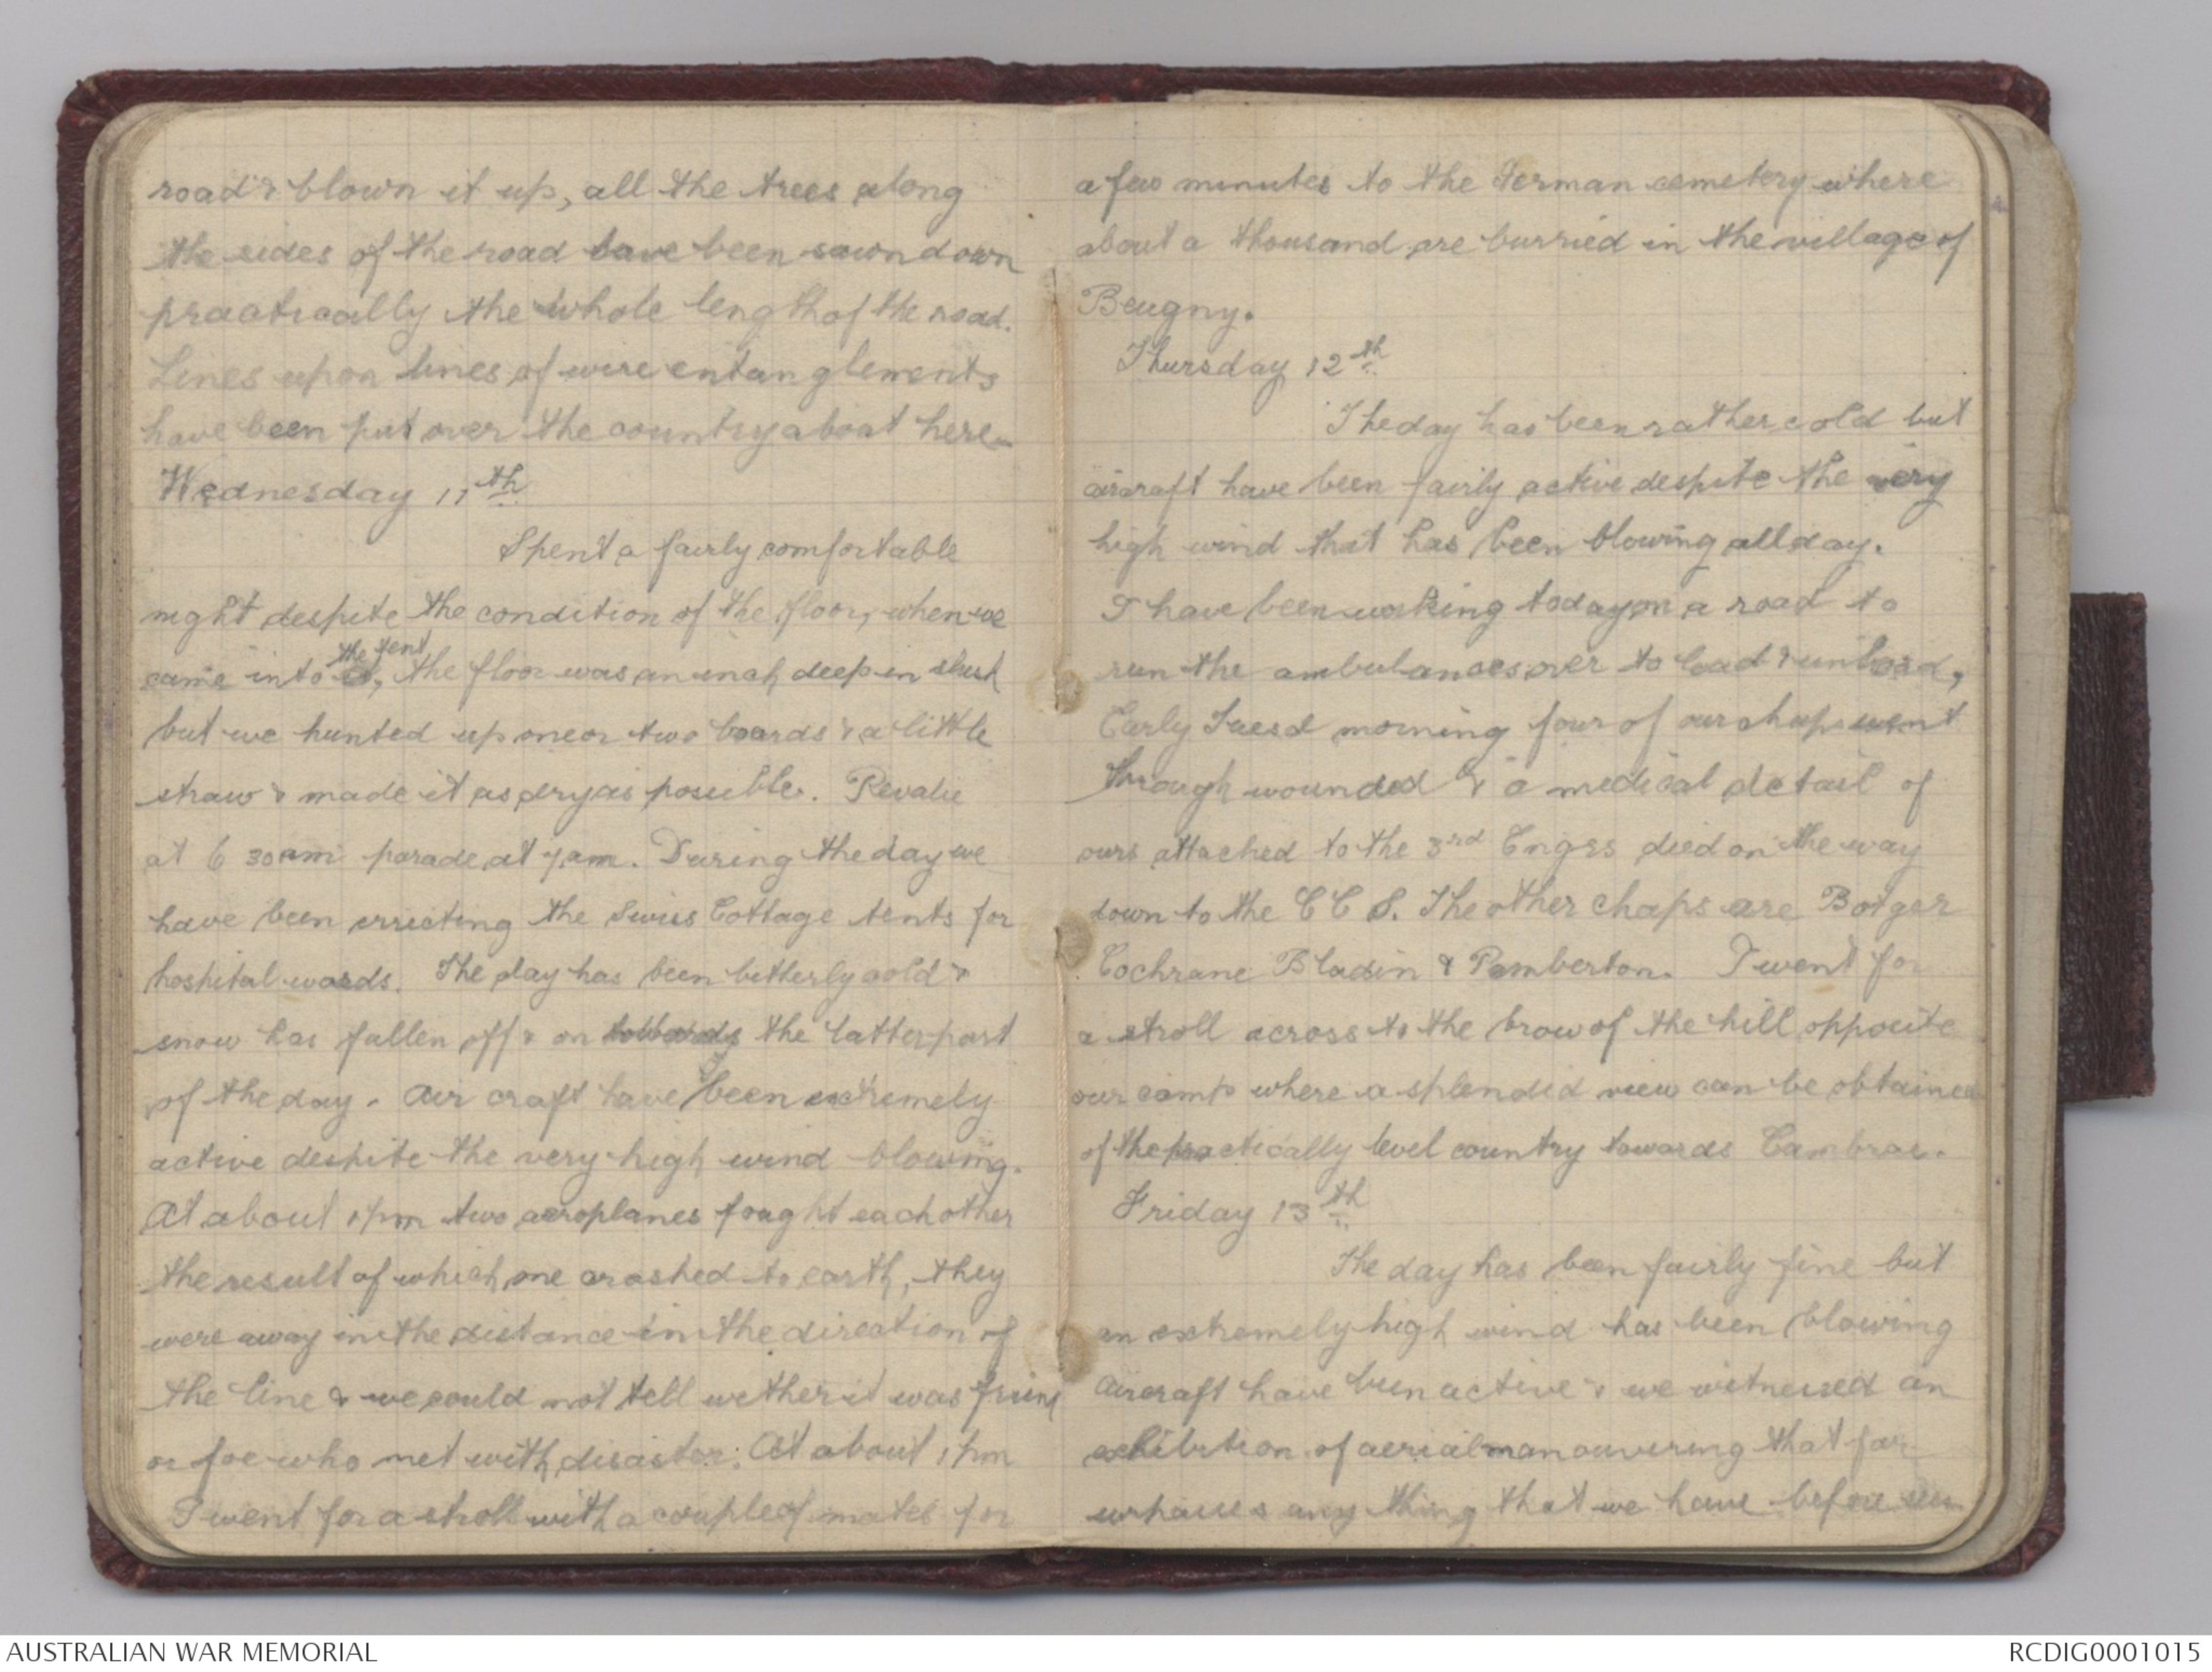 road & blown it up, all the trees along
the sides of the road have been sawn down
practically the whole length of the road.
Lines upon lines of wire entanglements
have been put over the country about here.
Wednesday 11th
Spent a fairly comfortable
night despite the condition of the floor, when we
the tent
came into it, the floor was an inch deep in slush
but we hunted up one or two boards & a little
straw & made it as dry as possible. Revalie
at 6 30 am parade at 7 am. During the day we
have been errecting the Swiss Cottage tents for
hospital wards. The day has been betterly cold &
snow has fallen off & on towards the latter part
of the day. Air craft have been extremely
active despite the very high wind blowing.
At about 1 pm two aeroplanes fought each other
the result of which one crashed to earth, they
were away in the distance in the direction of
the line & we could not tell wether it was friend
or foe who met with disaster. At about 1 pm
I went for a stroll with a couple of mates for
a few minutes to the German cemetery where
about a thousand are burried in the village of
Beugny.
Thursday 12th
The day has been rather cold but
aircraft have been fairly active despite the very
high wind that has been blowing all day.
I have been working today on a road to
run the ambulances over to load & unload,
Early Tuesd morning four of our chaps went
through wounded & a medical detail of
ours attached to the 3rd Engrs died on the way
down to the C C S. The other chaps are Botger
Cochrane Bladin & Pemberton. I went for
a stroll across to the brow of the hill opposite
our camp where a splendid view can be obtained
of the practically level country towards Cambrai.
Friday 13th
The day has been fairly fine but
an extremely high wind has been blowing
Aircraft have been active & we witnessed an
exhibition of aerial manouvering that far
surpasses any thing that we have before seen
AUSTRALIAN WAR MEMORIAL
RCDIG0001015